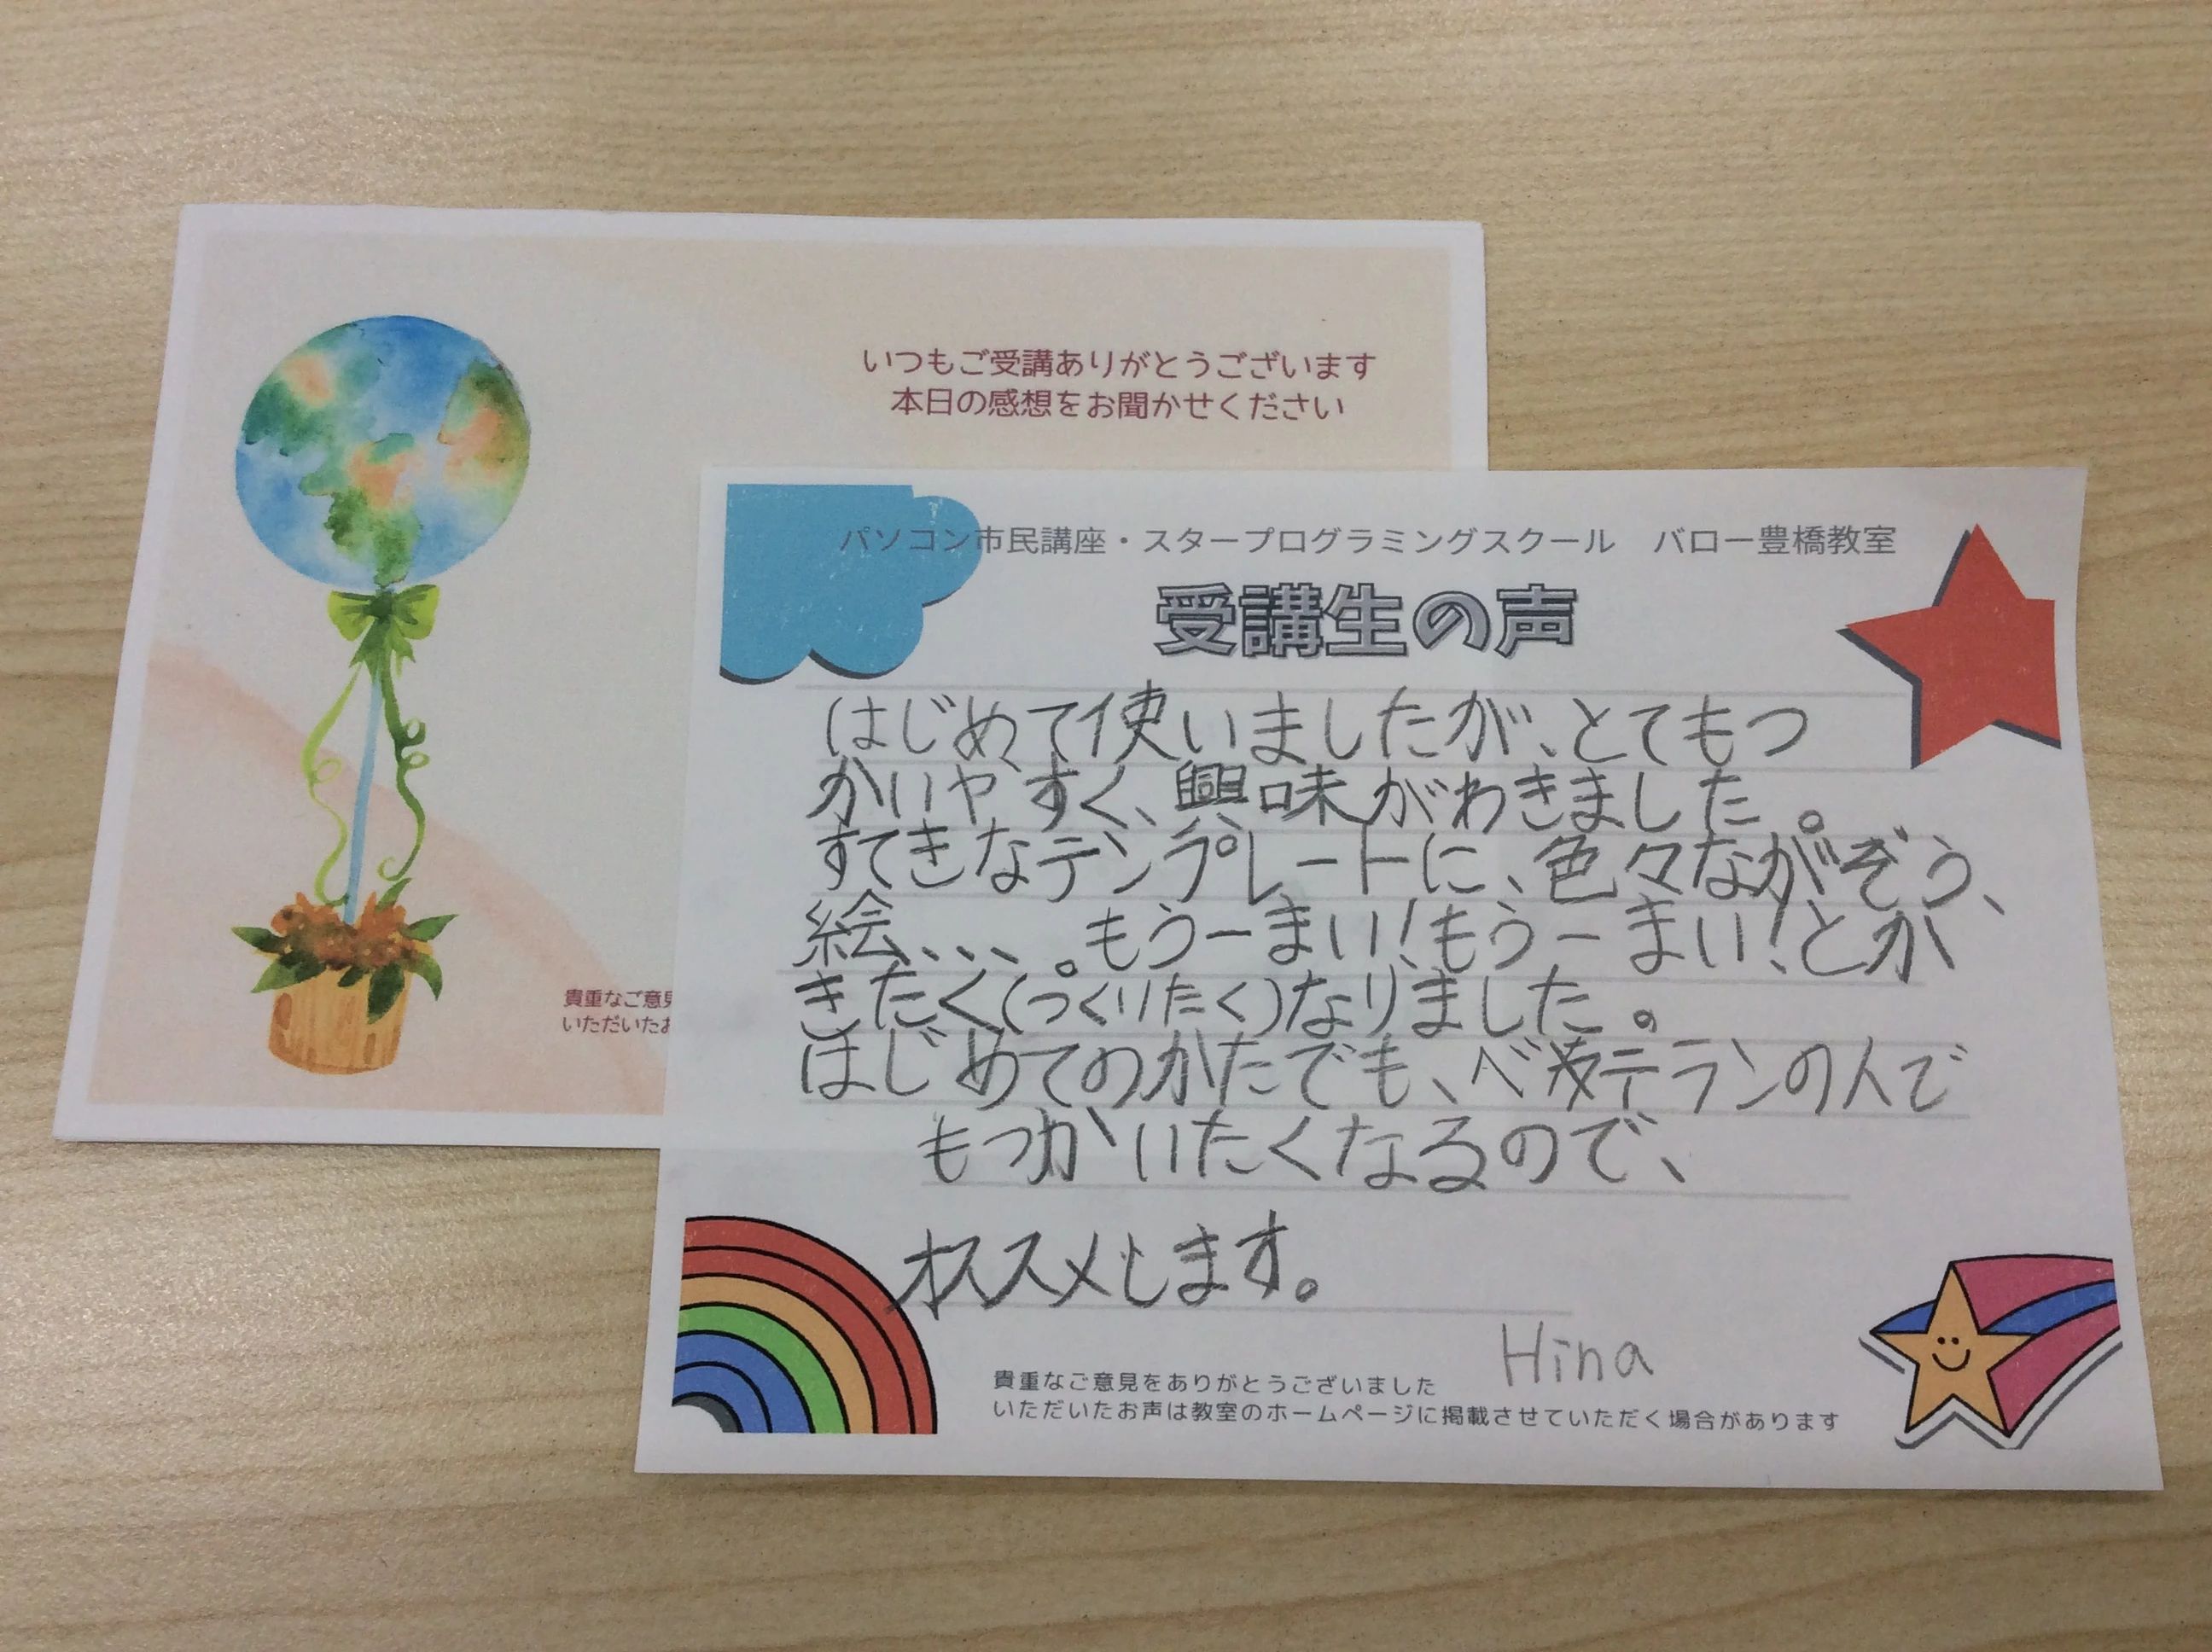 いつもご受講ありがとうございます
本日の感想をお聞かせください
貴重なご意見
いただいたお
パソコン市民講座・スタープログラミングスクール　バロー豊橋教室
受講生の声
はじめて使いましたが、とてもつ
かいやすく、興味がわきました。
すてきなテンプレートに、色々ながぞう、
絵、、、。もう一まい!もう一まい!とか
きたく(つくりたく)なりました。
はじめてのかたでも、ベテランの人で
もつかいたくなるので、
オススメします。
Hina
貴重なご意見をありがとうございました
いただいたお声は教室のホームページに掲載させていただく場合があります